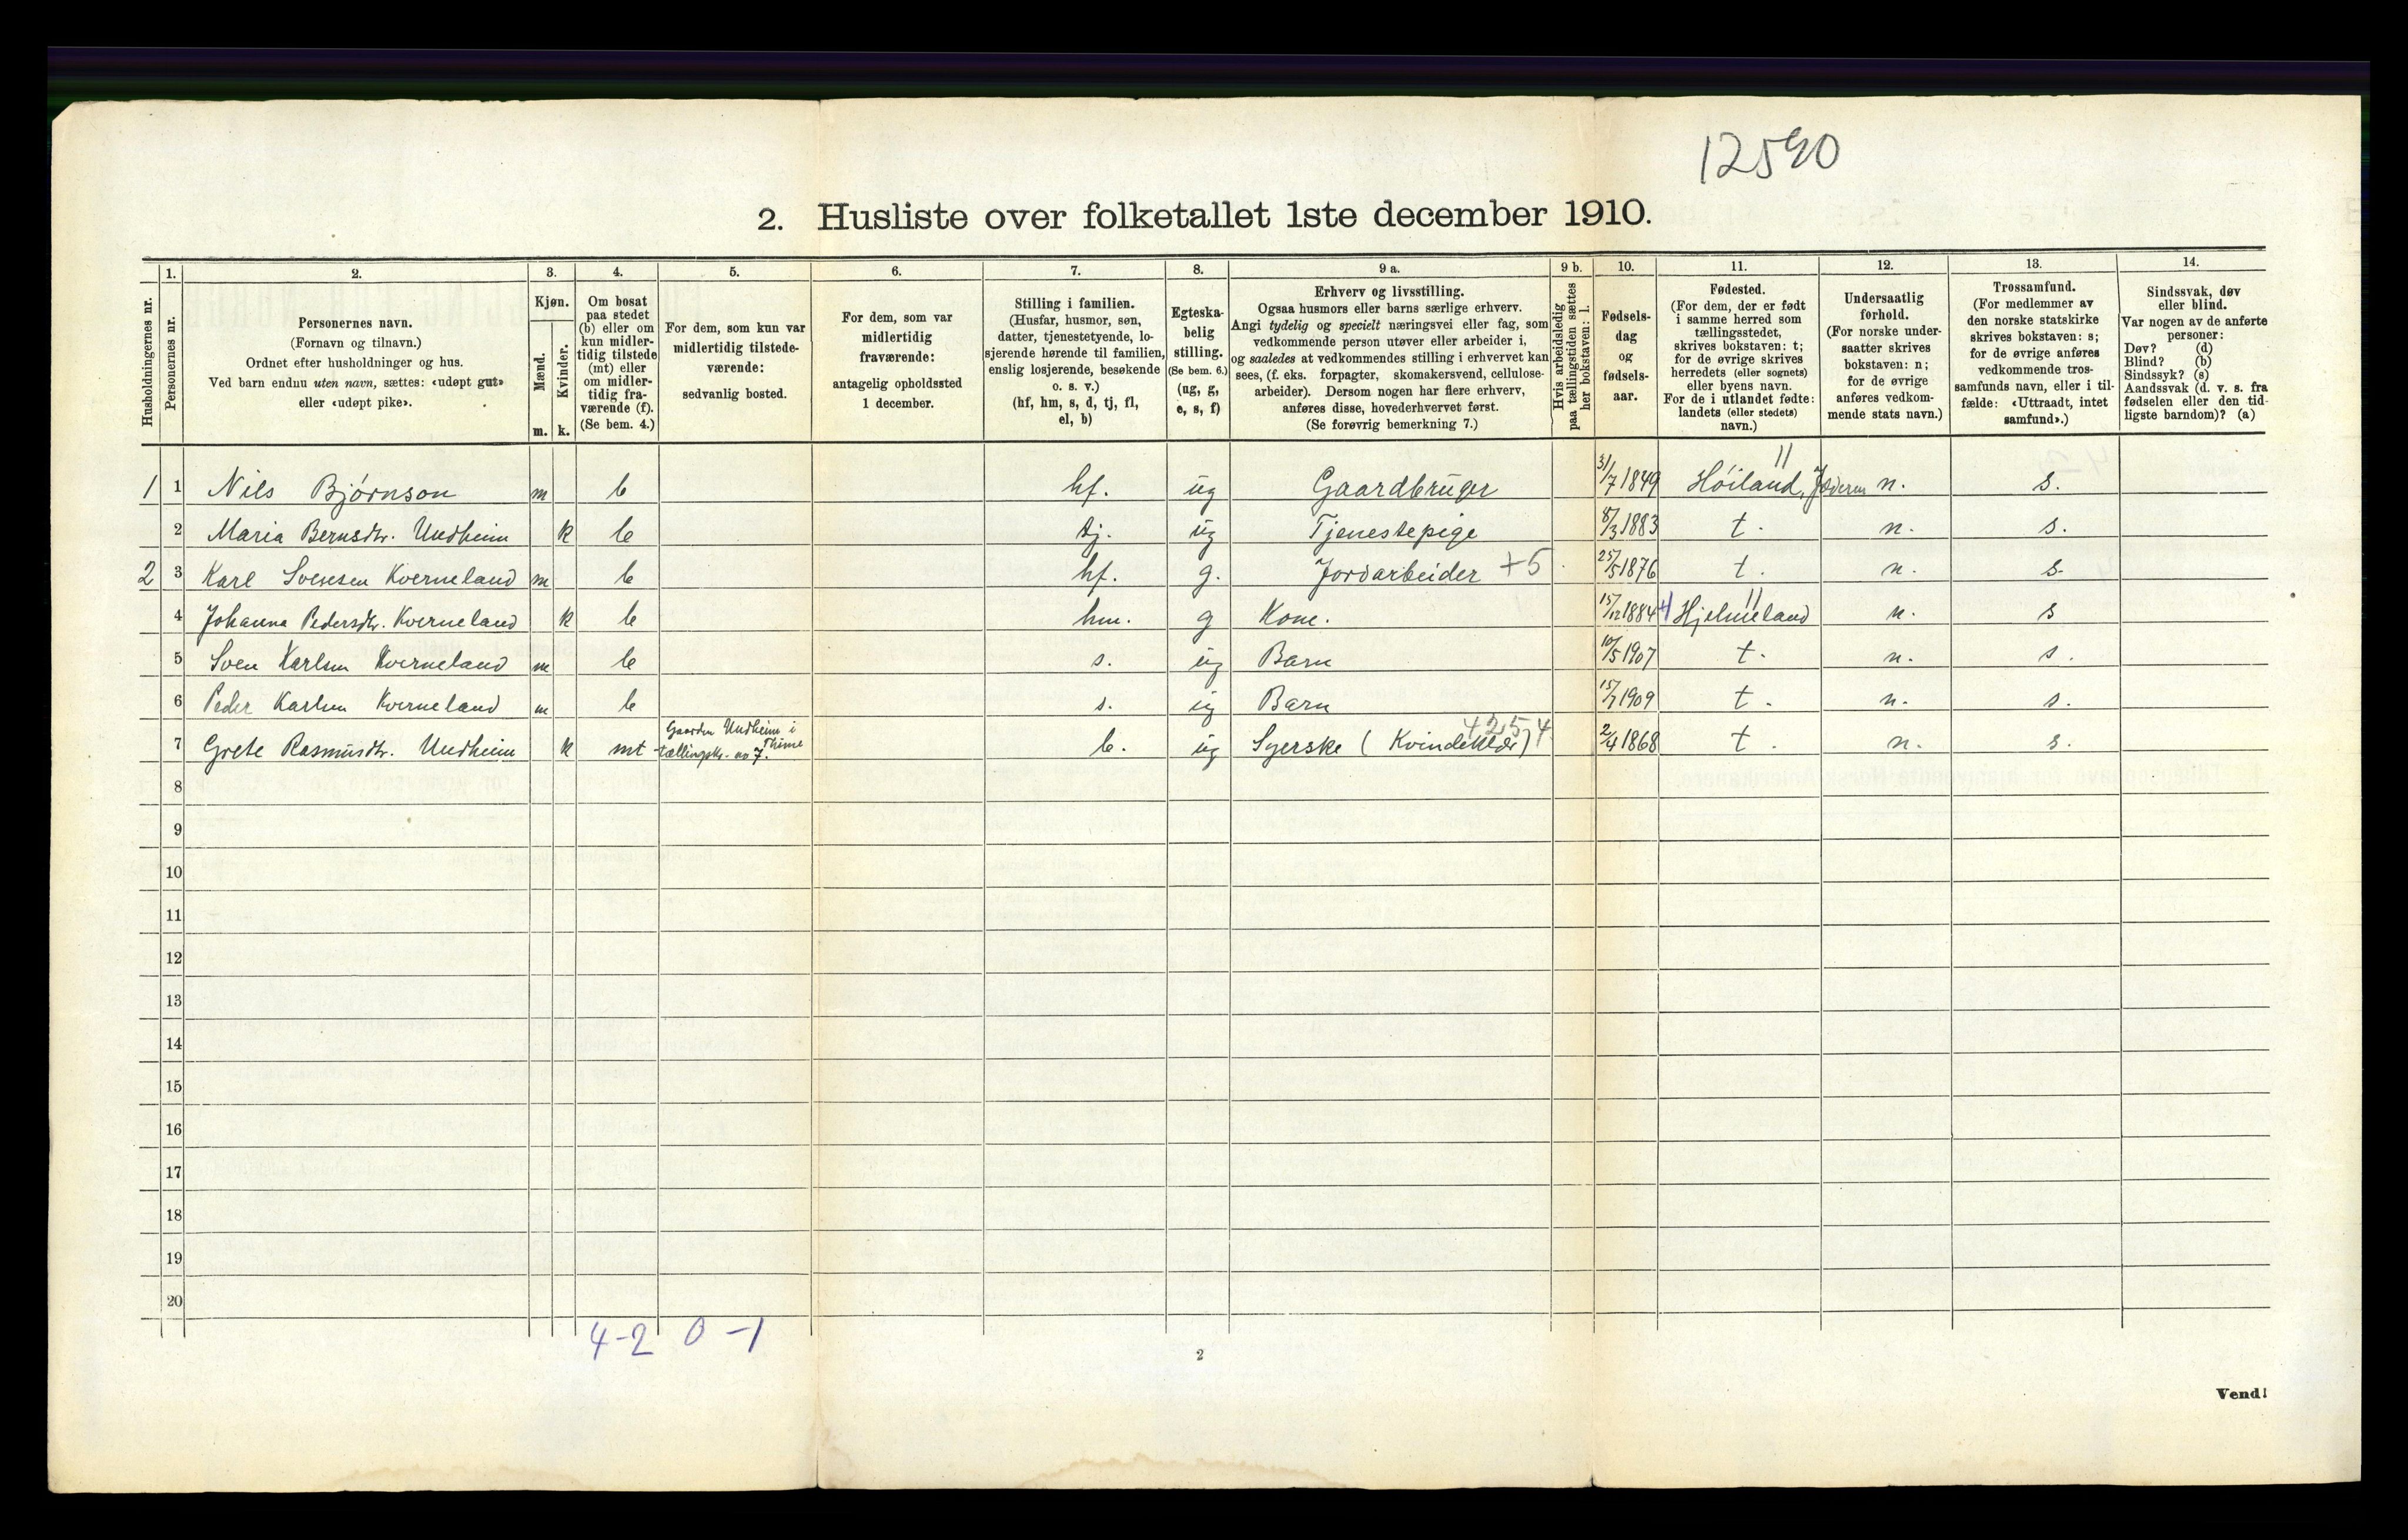 12590
2. Husliste over folketallet 1ste december 1910.
Husholdningernes nr.
1.
Personernes nr.
2.
Personernes navn.
(Fornavn og tilnavn.)
Ordnet efter husholdninger og hus.
Ved barn endnu uten navn, sættes: «udøpt gut»
eller «udøpt pike».
3.
Kjøn.
Mænd.
Kvinder.
m. k.
4.
Om bosat
paa stedet
(b) eller om
kun midler-
tidig tilstede
(mt) eller
om midler-
tidig fra-
værende (f).
(Se bem. 4.)
5.
For dem, som kun var
midlertidig tilstede-
værende:
sedvanlig bosted.
6.
For dem, som var
midlertidig
fraværende:
antagelig opholdssted
1 december.
7.
Stilling i familien.
(Husfar, husmor, søn,
datter, tjenestetyende, lo-
sjerende hørende til familien,
enslig losjerende, besøkende
o. s. v.)
(hf, hm, s, d, tj, fl,
el, b)
8.
Egteska-
belig
stilling.
(Se bem. 6.)
(ug, g,
e, s, f)
9 a.
Erhverv og livsstilling.
Ogsaa husmors eller barns særlige erhverv.
Angi tydelig og specielt næringsvei eller fag, som
vedkommende person utøver eller arbeider i,
og saaledes at vedkommendes stilling i erhvervet kan
sees, (f. eks. forpagter, skomakersvend, cellulose-
arbeider). Dersom nogen har flere erhverv,
anføres disse, hovederhvervet først.
(Se forøvrig bemerkning 7.)
9 b.
Hvis arbeidsledig
paa tællingstiden sættes
her bokstaven: l.
10.
Fødsels-
dag
og
fødsels-
aar.
11.
Fødested.
(For dem, der er født
i samme herred som
tællingsstedet,
skrives bokstaven: t;
for de øvrige skrives
herredets (eller sognets)
eller byens navn.
For de i utlandet fødte:
landets (eller stedets)
navn.)
12.
Undersaatlig
forhold.
(For norske under-
saatter skrives
bokstaven: n;
for de øvrige
anføres vedkom-
mende stats navn.)
13.
Trossamfund.
(For medlemmer av
den norske statskirke
skrives bokstaven: s;
for de øvrige anføres
vedkommende tros-
samfunds navn, eller i til-
fælde: «Uttraadt, intet
samfund».)
14.
Sindssvak, døv
eller blind.
Var nogen av de anførte
personer:
Døv? (d)
Blind? (b)
Sindssyk? (s)
Aandssvak (d. v. s. fra
fødselen eller den tid-
ligste barndom)? (a)
1 1 Nils Bjørnson m b hf. ug Gaardbruger 31/7 1849 Höiland, Jæderen n. s.
2 Maria Bernsdtr. Undheim k b tj. ug Tjenestepige 8/3 1883 t. n. s.
2 3 Karl Svensen Kverneland m b hf. g. Jordarbeider +5 25/5 1876 t. n. s.
4 Johanna Pedersdtr. Kverneland k b hm. g Kone. 15/12 1884 4 Hjelmeland n. s
5 Sven Karlsen Kverneland m b s. ug Barn 10/5 1907 t. n. s.
6 Peder Karlsen Kverneland m b s. ug Barn 15/7 1909 t. n. s.
7 Grete Rasmusdtr. Undheim k mt Gaarden Undheim i Thime tællingskr. no 7. b. ug Syerske (Kvindeklær) 4254 2/4 1868 t. n. s.
8
9
10
11
12
13
14
15
16
17
18
19
20
4-2 0-1
2
Vend!